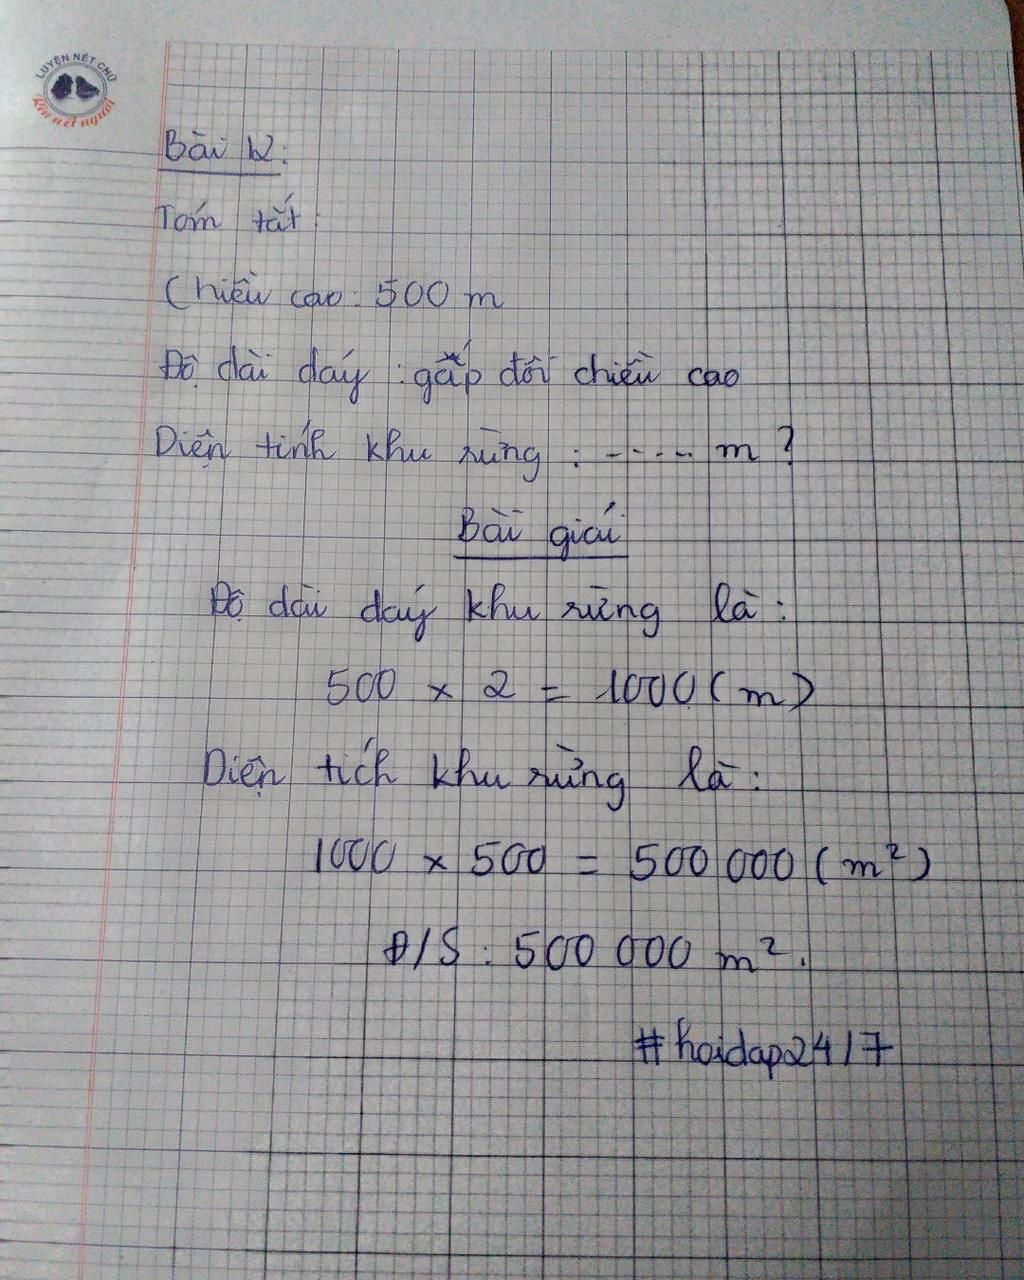 LUYỆN NÉT CHỮ
Rèn nết người
Bài 12:
Tóm tắt:
Chiều cao: 500 m
Độ dài đáy : gấp đôi chiều cao
Diện tính khu rừng : ----- m ?
Bài giải
Độ dài đáy khu rừng là :
500 × 2 = 1000 ( m )
Diện tích khu rừng là :
1000 × 500 = 500 000 ( m² )
Đ/S : 500 000 m².
#hoidap24/7